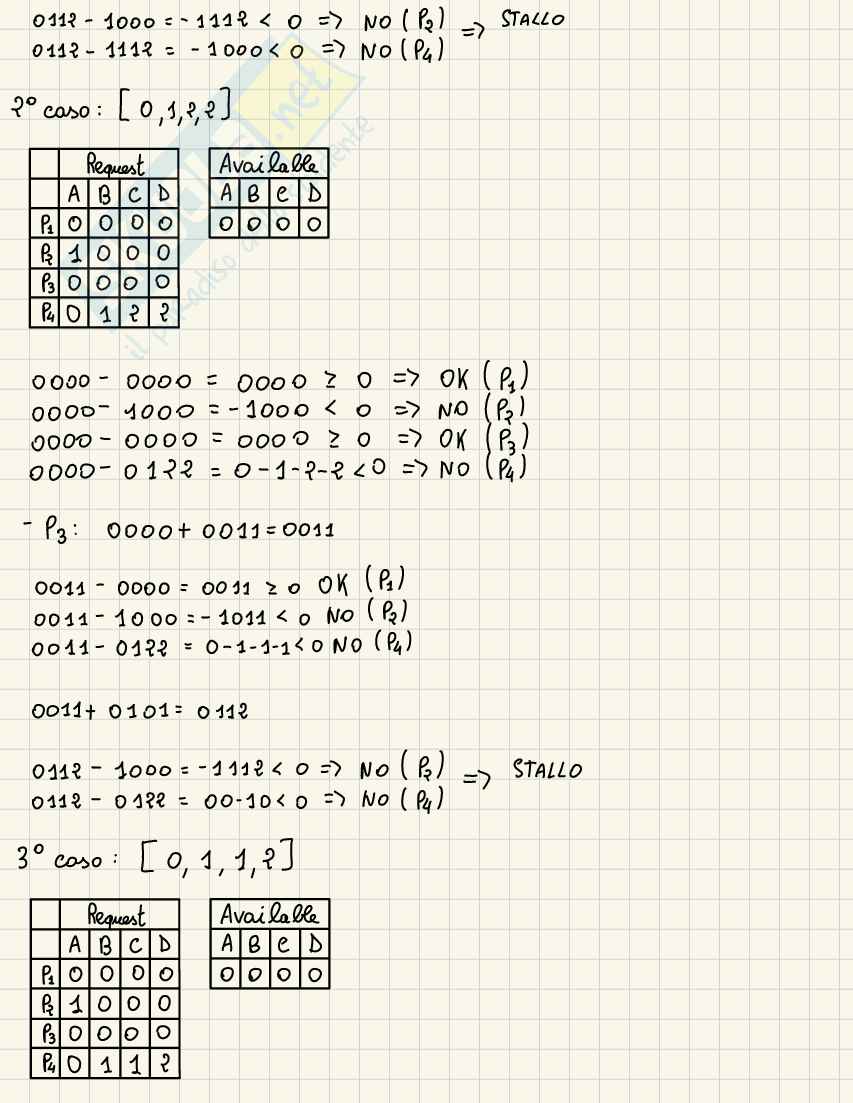 0112 - 1000 = - 1112 < 0 => NO (P2) => STALLO
0112 - 1112 = - 1000 < 0 => NO (P4)
2° caso: [0,1,2,2]
Request Available
A B C D A B C D
P1 0 0 0 0 0 0 0 0
P2 1 0 0 0
P3 0 0 0 0
P4 0 1 2 2
0000 - 0000 = 0000 ≥ 0 => OK (P1)
0000 - 1000 = -1000 < 0 => NO (P2)
0000 - 0000 = 0000 ≥ 0 => OK (P3)
0000 - 0122 = 0-1-2-2 < 0 => NO (P4)
- P3: 0000 + 0011 = 0011
0011 - 0000 = 0011 ≥ 0 OK (P1)
0011 - 1000 = - 1011 < 0 NO (P2)
0011 - 0122 = 0-1-1-1 < 0 NO (P4)
0011 + 0101 = 0112
0112 - 1000 = -1112 < 0 => NO (P2) => STALLO
0112 - 0122 = 00-10 < 0 => NO (P4)
3° caso: [0, 1, 1, 2]
Request Available
A B C D A B C D
P1 0 0 0 0 0 0 0 0
P2 1 0 0 0
P3 0 0 0 0
P4 0 1 1 2